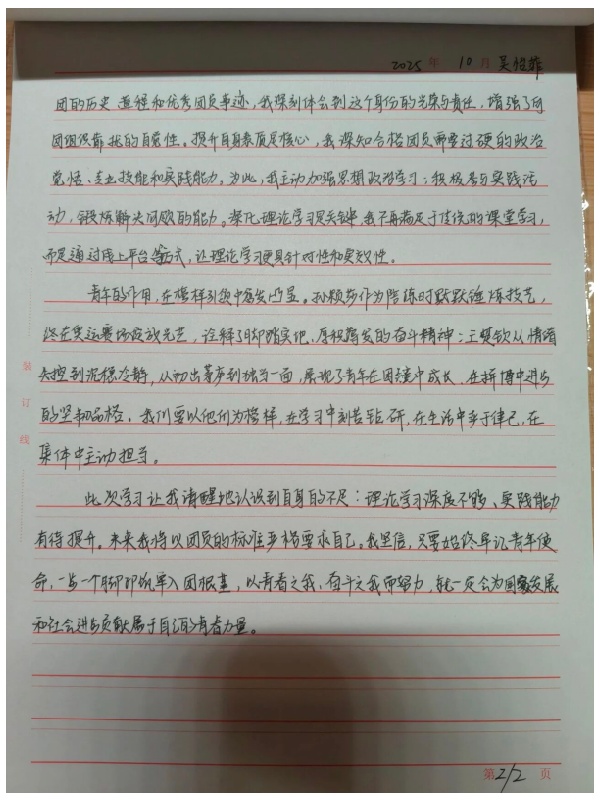 2025 年 10 月 吴怡菲
团的历史进程和优秀团员事迹，我深刻体会到这个身份的光荣与责任，增强了向
团组织靠拢的自觉性。提升自身素质是核心，我深知合格团员需要过硬的政治
觉悟、专业技能和实践能力。为此，我主动加强思想政治学习；积极参与实践活
动，锻炼解决问题的能力。深化理论学习是关键，我不再满足于传统的课堂学习，
而是通过线上平台等方式，让理论学习更具针对性和实效性。
青年的作用，在榜样引领中愈发凸显。孙颖莎作为陪练时默默锤炼技艺，
终在奥运赛场绽放光芒，诠释了脚踏实地、厚积薄发的奋斗精神；王楚钦从情绪
失控到沉稳冷静，从初出茅庐到独当一面，展现了青年在困境中成长，在拼搏中进步
的坚韧品格。我们要以他们为榜样，在学习中刻苦钻研，在生活中严于律己，在
集体中主动担当。
此次学习让我清醒地认识到自身的不足：理论学习深度不够、实践能力
有待提升。未来我将以团员的标准严格要求自己。我坚信，只要始终牢记青年使
命，一步一个脚印筑牢入团根基，以青春之我、奋斗之我而努力，就一定会为国家发展
和社会进步贡献属于自己的青春力量。
装
订
线
第 2/2 页